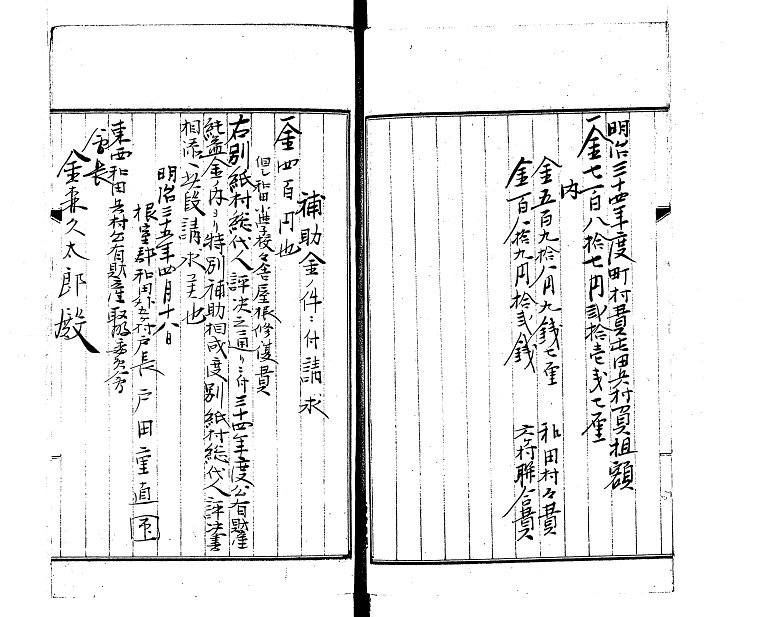 明治三十四年度町村費屯田兵村負担額
一金七百八拾七円弐拾壱銭七厘
内
金五百九拾八円九銭七厘 和田村々費
金百八拾九円拾弐銭 六ケ村聯合費
補助金ノ件ニ付請求
一金四百円也
但シ和田小学校々舎屋根修復費
右別紙村総代人評決之通リニ付三十四年度公有財産
純益金ノ内ヨリ特別補助相成度別紙村総代人評決書
相添ヘ此段請求候也
明治三十五年四月十八日
根室郡和田外六村戸長 戸田重直 印
東西和田兵村公有財産取扱委員
会長
金東久太郎殿